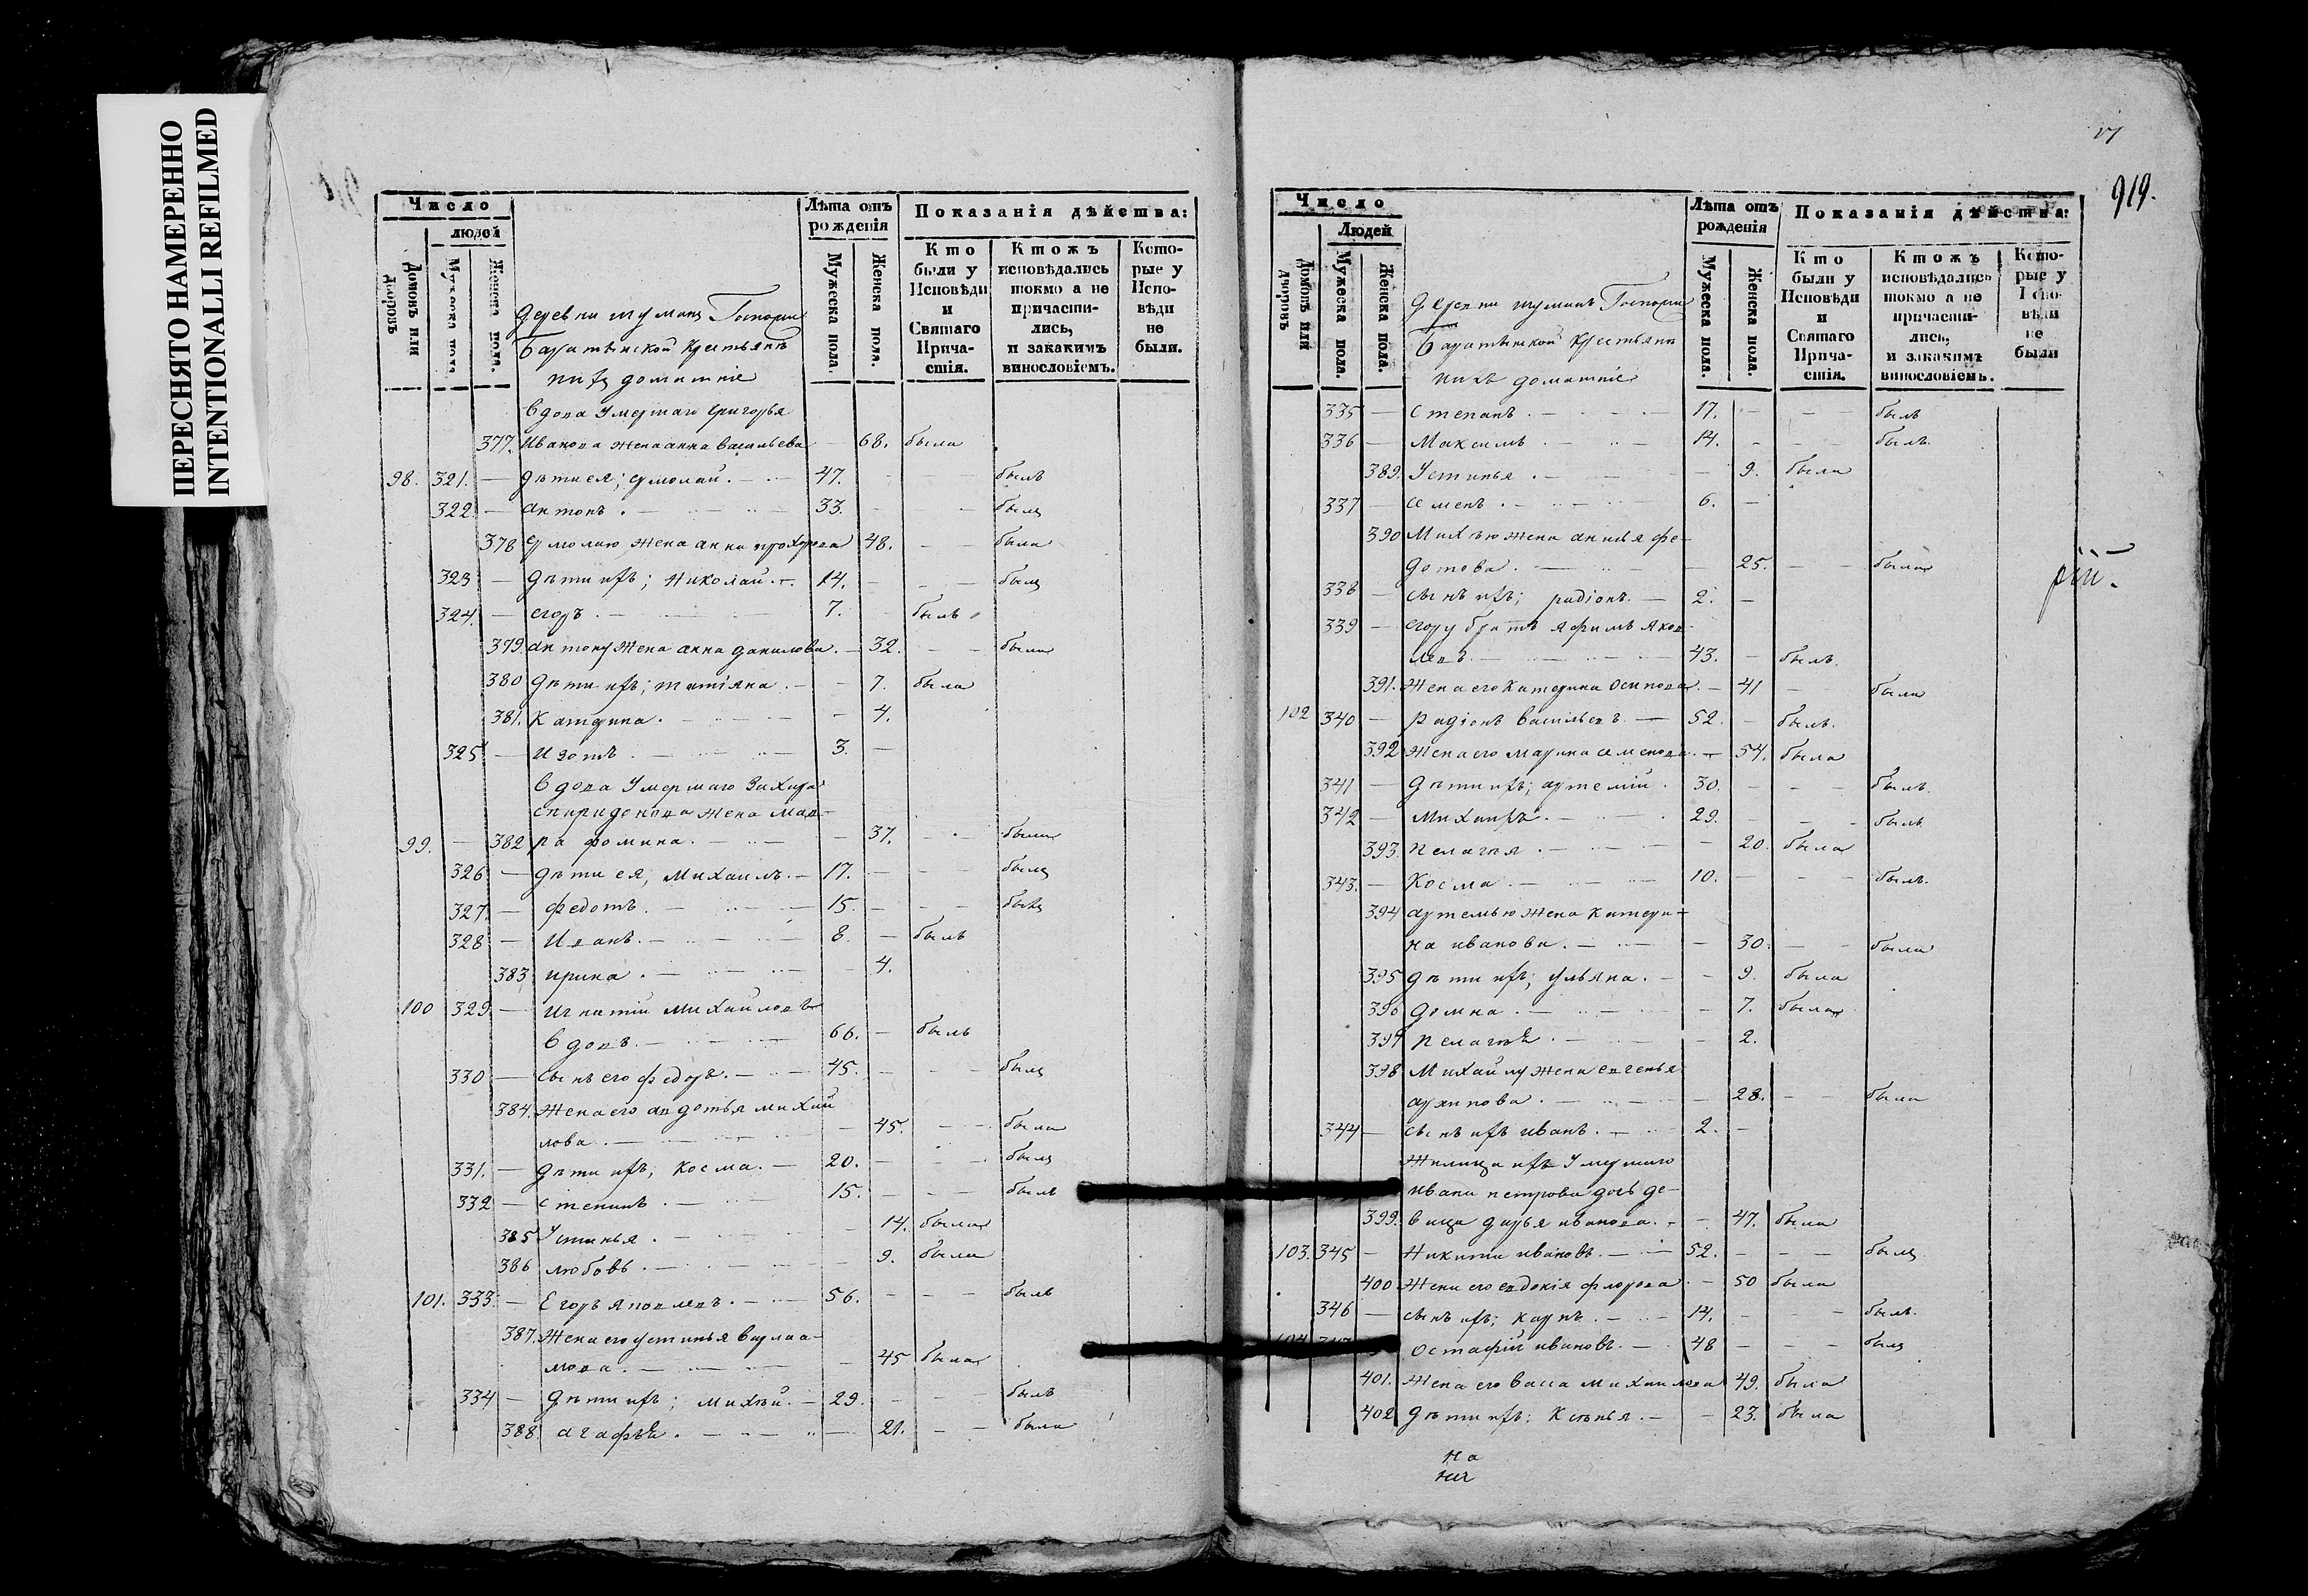 ПЕРЕСНЯТО НАМЕРЕННО
INTENTIONALLI REFILMED
Число
людей
Домовъ или дворовъ
Мужеска пола.
Женска пола.
Лѣта отъ рожденія
Мужеска пола.
Женска пола.
Показанія дѣйства:
Кто были у Исповѣди и Святаго Причастія.
Ктожъ исповѣдались токмо а не причастились, и закакимъ винословіемъ.
Которые у Исповѣди не были.
деревни
крестьянъ
ихъ домашніе
вдова умершаго григорья
377. иванова жена анна васильева — 68. была
98. 321. — дѣти ея; ермолай. — 47. былъ
322. — антонъ. — 33. былъ
378 ермолаю жена анна прохорова 48. — была
323 — дѣти ихъ; николай. — 14. — былъ
324. — егоръ. — 7. былъ
379. антону жена анна данилова. — 32. — была
380 дѣти ихъ; татіяна. — 7. была
381. катерина. — 4.
325 — изотъ. — 3. —
вдова умершаго захара
спиридонова жена мав-
99. — 382 ра фомина. — 37. — была
326 — дѣти ея, михаилъ. — 17. — былъ
327. — федотъ. — 15. — былъ
328 — иванъ. — 8. — былъ
383 ирина. — 4.
100 329. — игнатій михайловъ
вдовъ. — 66. — былъ
330 — сынъ его федоръ. — 45. — былъ
384. жена его авдотья михай
лова. — 45. — была
331. — дѣти ихъ, косма. — 20. — былъ
332 — степанъ. — 15. — былъ
385 устинья. — 14. была
386 любовь. — 9. была
101. 333. — Егоръ яковлевъ. — 56. — былъ
387. жена его устинья варлаа-
мова. — 45 была
334 — дѣти ихъ; михѣй. — 29. — былъ
388 агафья. — 21. — была
919.
Число
Людей
Домовъ или дворовъ
Мужеска пола.
Женска пола.
Лѣта отъ рожденія
Мужеска пола.
Женска пола.
Показанія дѣйства:
Кто были у Исповѣди и Святаго Причастія.
Ктожъ исповѣдались токмо а не причастились, и закакимъ винословіемъ.
Которые у Исповѣди не были
деревни
крестьянъ
ихъ домашніе
335 — степанъ. — 17. — былъ
336 — максимъ. — 14. — былъ.
389. устинья. — 9. была
337 — семенъ. — 6. —
390 михѣю жена анисья фе-
дотова. — 25. — была
338 — сынъ ихъ; радіонъ. — 2. —
339 — егору братъ яфимъ яков-
левъ. — 43. — былъ.
391. жена его катерина осипова. — 41 — была
102 340 — радіонъ васильевъ. — 52. — былъ.
392 жена его марина семенова. — 54. была
341 — дѣти ихъ; артемій. 30. — былъ.
342 — михаилъ. — 29. — былъ
393. пелагея. — 20. была
343. — косма. — 10. — былъ.
394 артемью жена катери-
на иванова. — 30. — была
395 дѣти ихъ; ульяна. — 9. была
396 домна. — 7. была
397 пелагея. — 2.
398 михайлу жена евгенья
архипова. — 28. — была
344 — сынъ ихъ иванъ. — 2. —
жилица ихъ умершаго
ивана петрова дочь де-
399. вица дарья иванова. — 47. была
103. 345 — никита ивановъ. — 52. — былъ
400 жена его евдокія флорова — 50 была
346 — сынъ ихъ; карпъ. — 14. — былъ.
остафій ивановъ. — 48 — былъ
401. жена его васса михаилова 49. была
402 дѣти ихъ: ксенья. — 23. была